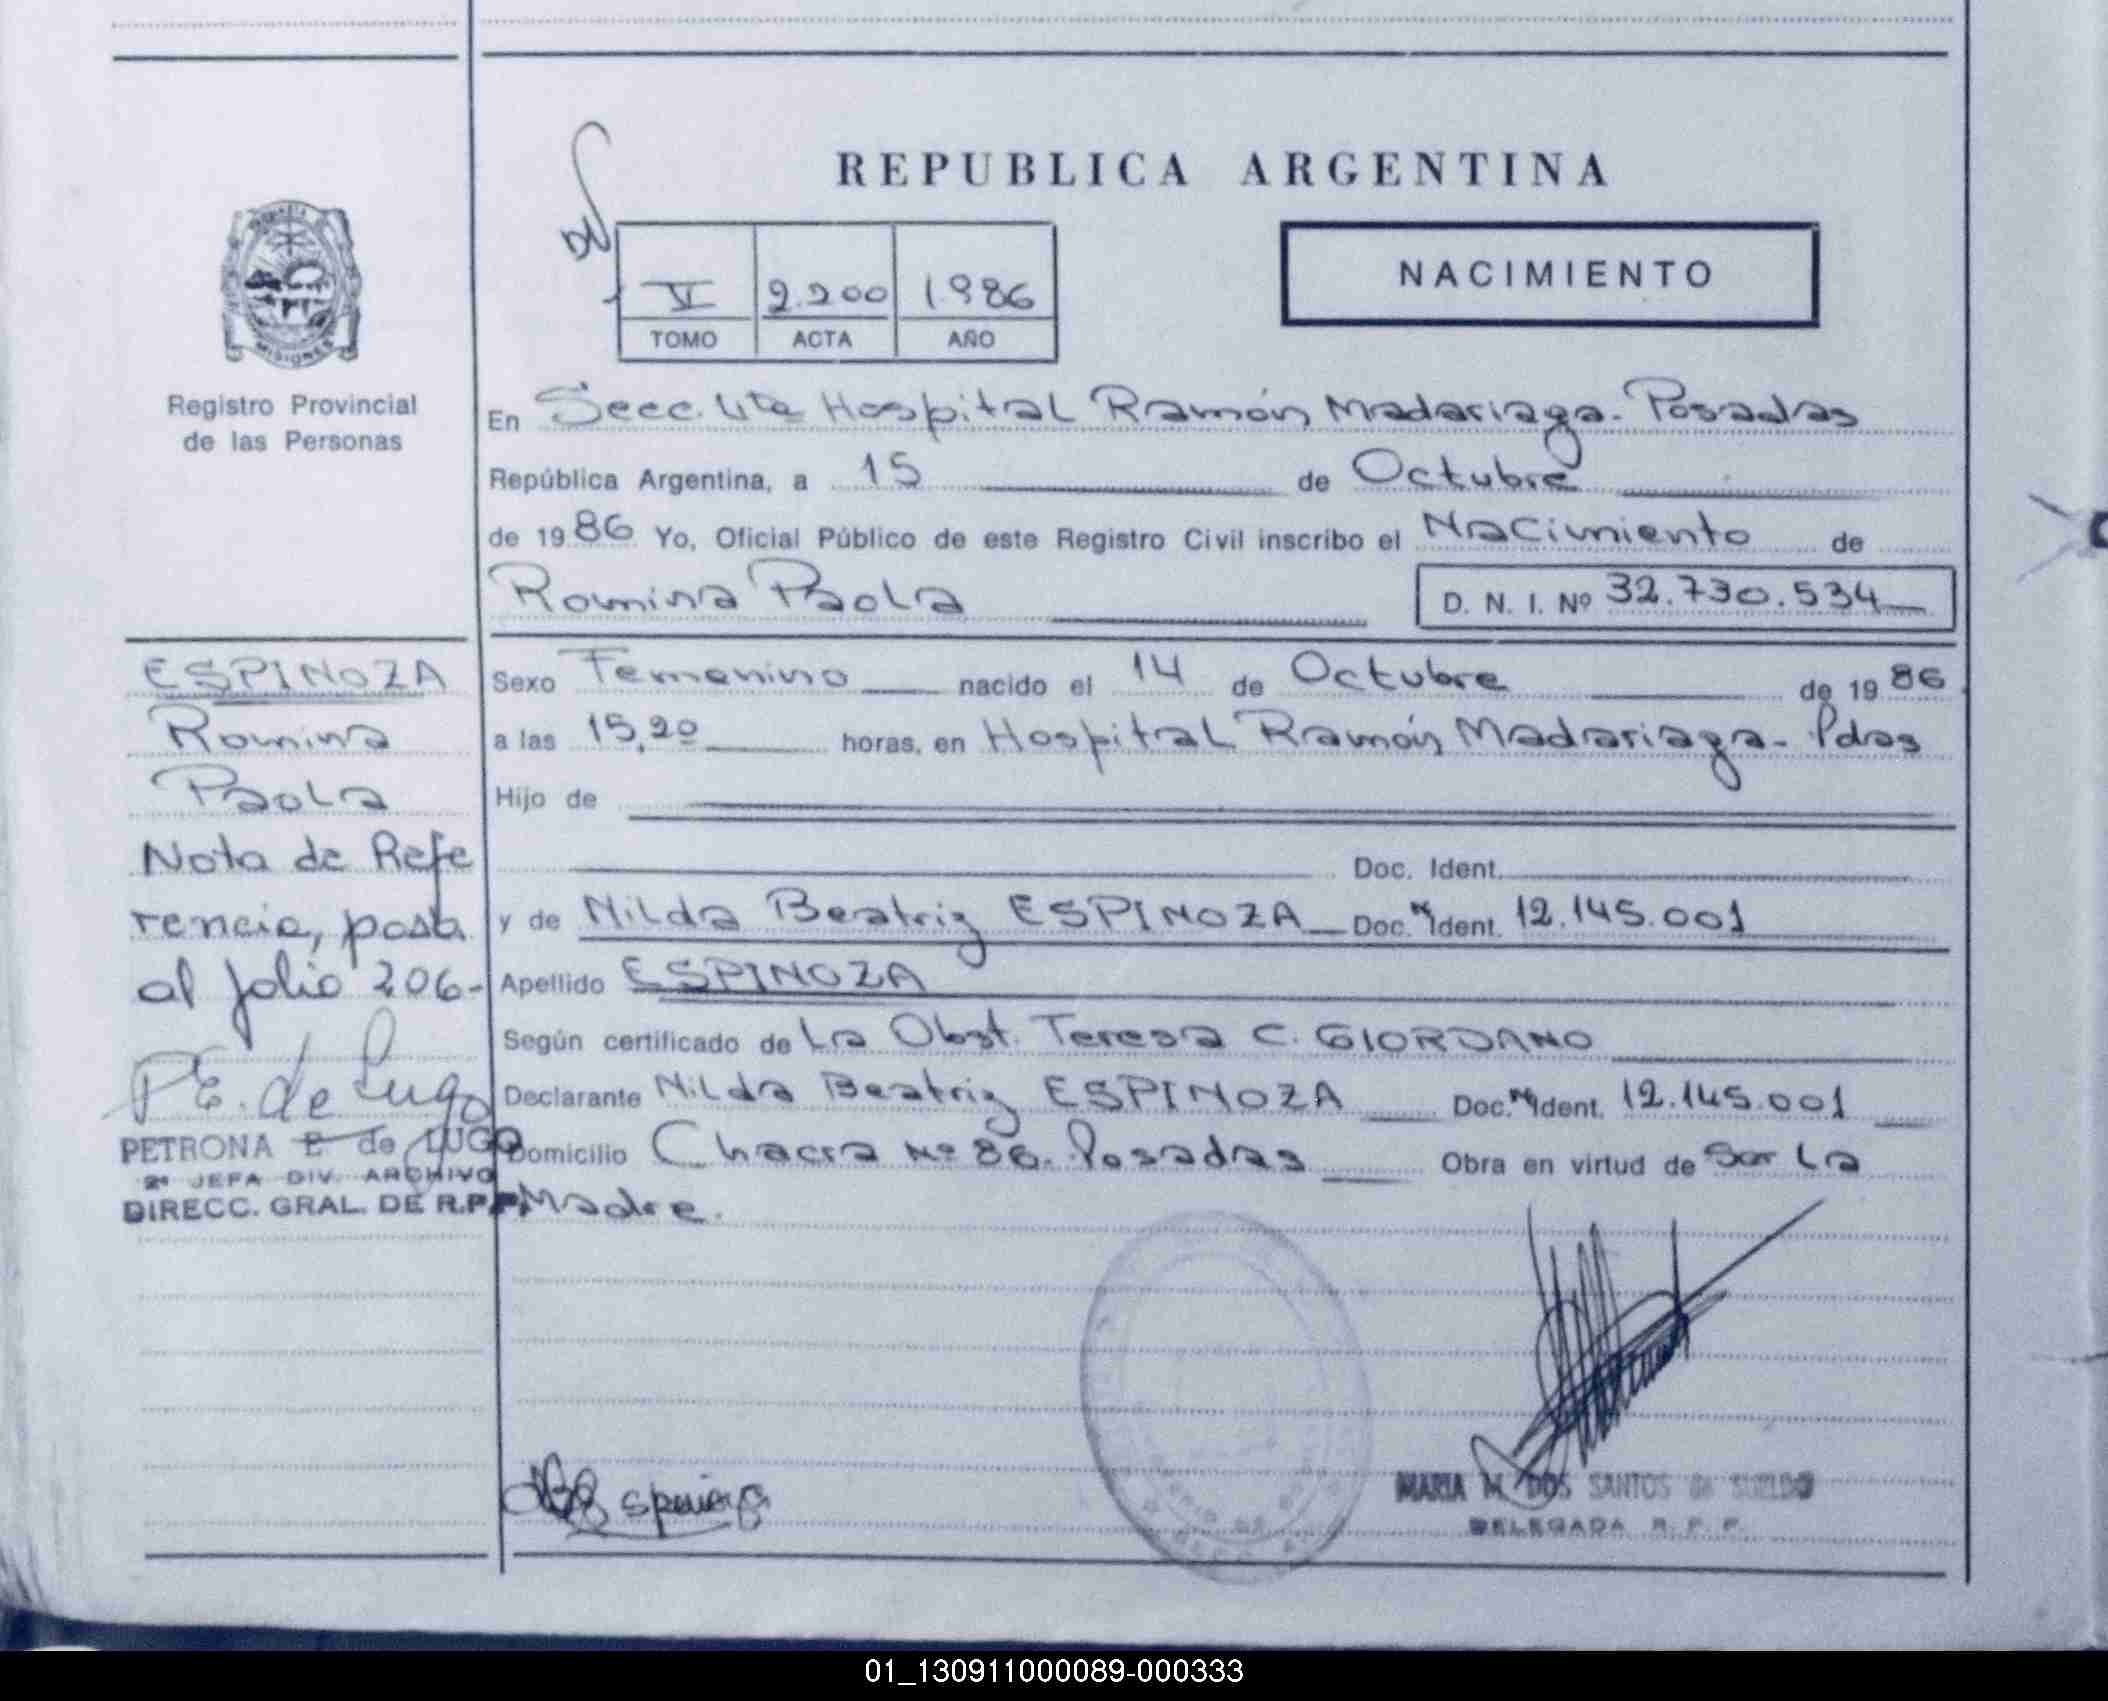 REPUBLICA ARGENTINA
VI 2.200 1986
TOMO ACTA AÑO
NACIMIENTO
MISIONES
Registro Provincial
de las Personas
En Secc. 4ta Hospital Ramón Madariaga. Posadas
República Argentina, a 15 de Octubre
de 1986 Yo, Oficial Público de este Registro Civil inscribo el Nacimiento de
Romina Paola D. N. I. Nº 32.730.534
Sexo Femenino nacido el 14 de Octubre de 1986
a las 15,20 horas, en Hospital Ramón Madariaga - Pdas
Hijo de
Doc. Ident.
y de Nilda Beatriz ESPINOZA Doc. Ident. 12.145.001
Apellido ESPINOZA
Según certificado de La Obst. Teresa C. GIORDANO
Declarante Nilda Beatriz ESPINOZA Doc. Ident. 12.145.001
Domicilio Chacra Nº 86. Posadas Obra en virtud de Ser La
Madre.
ESPINOZA
Romina
Paola
Nota de Refe
rencia, pasa
al folio 206-
P E. de Lugo
PETRONA E de LUGO
2ª JEFA DIV. ARCHIVO
DIRECC. GRAL. DE R.P.P.
MARIA M. DOS SANTOS de SUELDO
DELEGADA R. P. P.
01_130911000089-000333